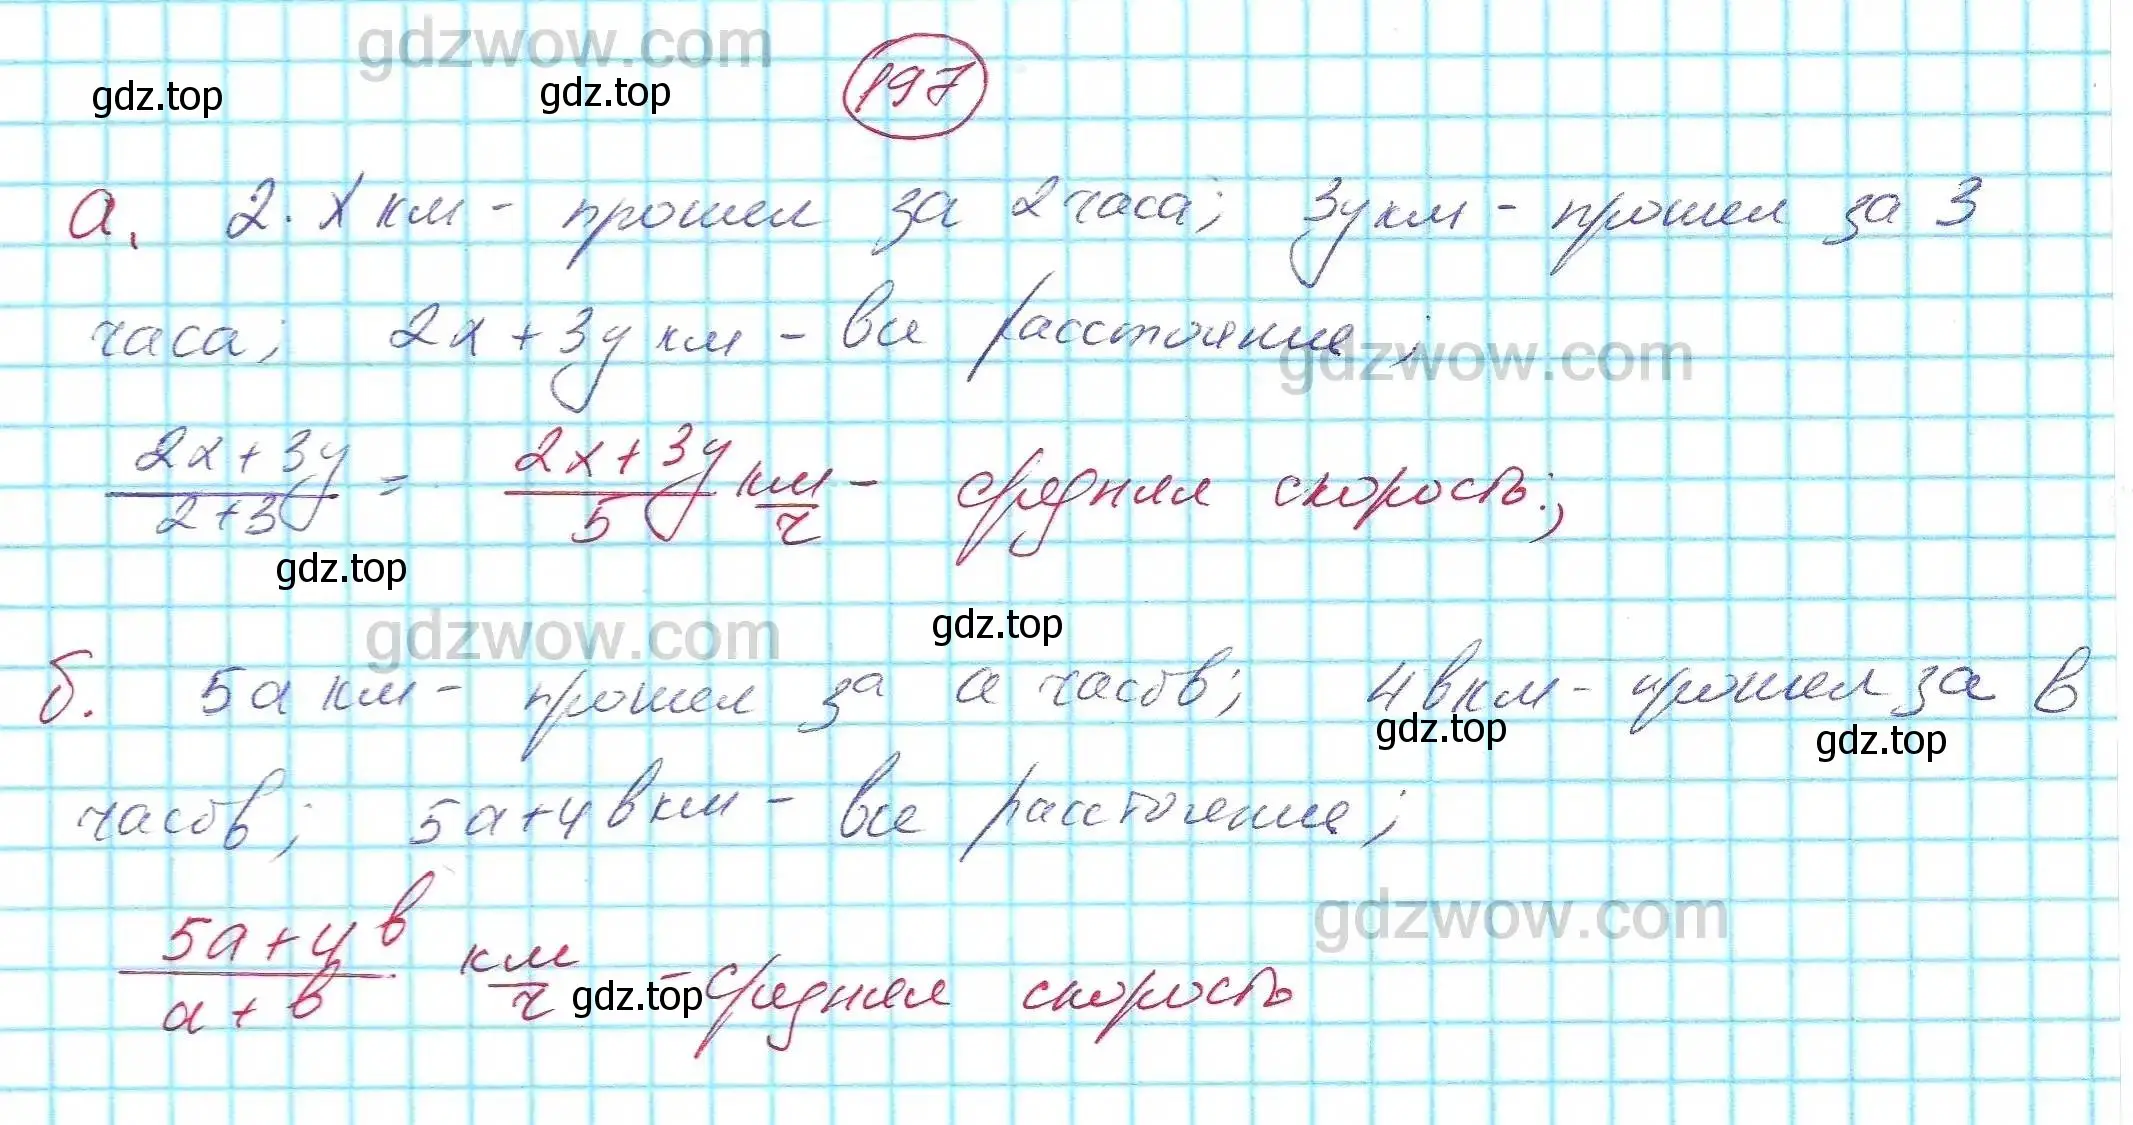 gdzwow.com
gdz.top gdz.top 197
а. 2·x км - прошел за 2 часа; 3y км - прошел за 3
часа; 2x+3y км - все расстояние;
gdzwow.com
2x+3y/2+3 = 2x+3y/5 км/ч - средняя скорость;
gdz.top
gdzwow.com gdz.top
б. 5a км - прошел за a часов; 4в км - прошел за в
gdz.top gdz.top
часов; 5a+4в км - все расстояние;
gdzwow.com
5a+4в/a+в км/ч - средняя скорость
gdz.top